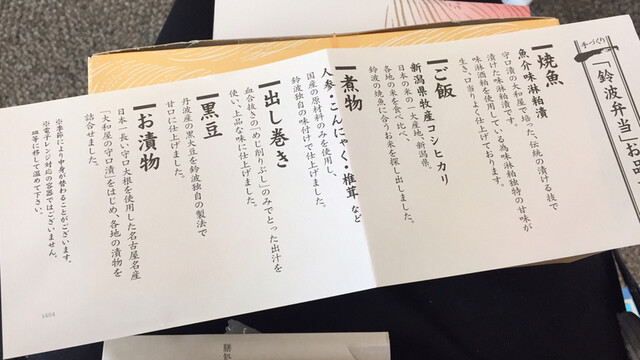 手づくり
「鈴波弁当」お品
焼魚
魚介味淋粕漬
守口漬の大和屋で培った、伝統の漬ける技で
漬けた味淋粕漬です。
味淋酒粕を使用している為味淋粕独特の甘味が
生き、口当りよく仕上げております。
ご飯
新潟県牧産コシヒカリ
日本の米の一大産地、新潟県。
各地の米を食べ比べ、
鈴波の焼魚に合うお米を探し出しました。
煮物
人参・こんにゃく・椎茸 など
国産の原材料のみを使用し、
鈴波独自の味付けで仕上げました。
出し巻き
血合抜きの「めじ削りぶし」のみでとった出汁を
使い、上品な味に仕上げました。
黒豆
丹波産の黒大豆を鈴波独自の製法で
甘口に仕上げました。
お漬物
日本一長い守口大根を使用した名古屋名産
「大和屋の守口漬」をはじめ、各地の漬物を
詰合せました。
※季節により中身が替わることがございます。
※電子レンジ対応の容器ではございません。
皿等に移して温めて下さい。
1404